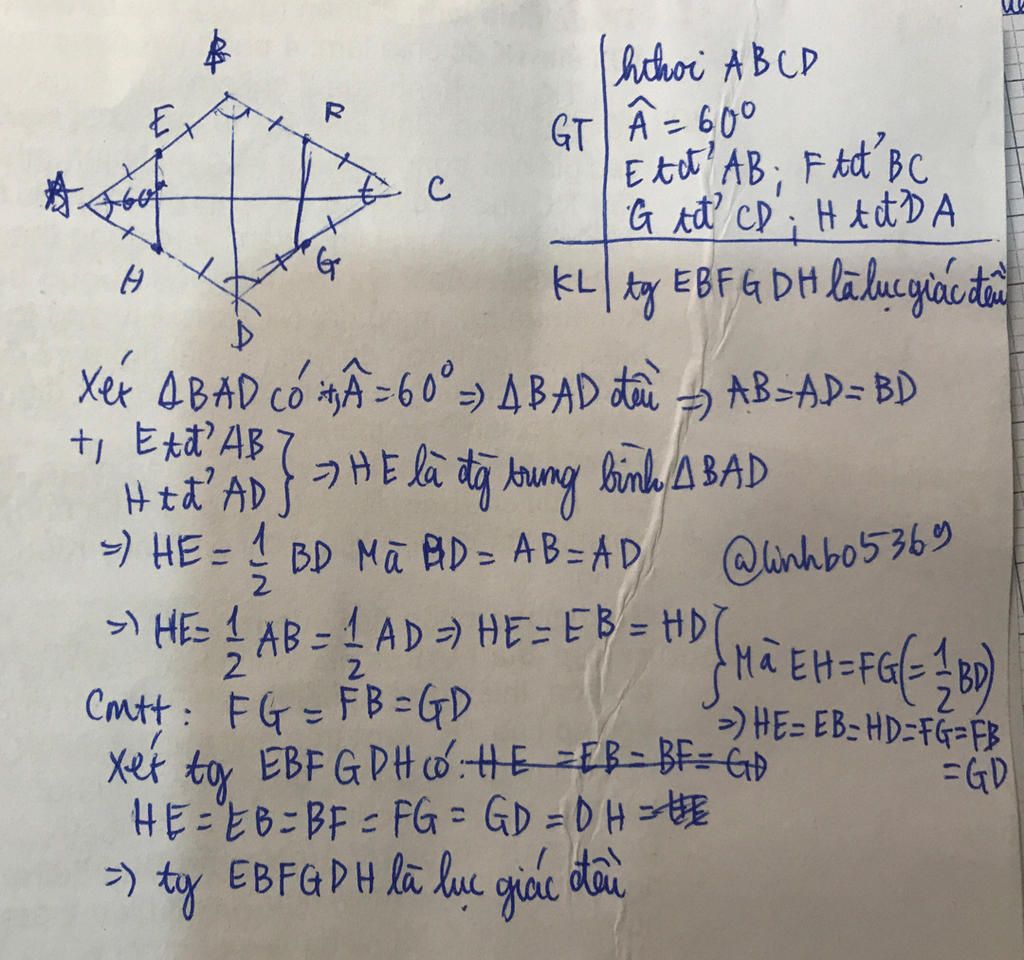 B
E
R
A
60°
C
H
G
D
GT
hthoi ABCD
Â = 60°
E tđ' AB ; F tđ' BC
G tđ' CD ; H tđ' DA
KL
tg EBFGDH là lục giác đều
Xét ΔBAD có +, Â = 60° => ΔBAD đều => AB = AD = BD
+, E tđ' AB
H tđ' AD } => HE là đg trung bình ΔBAD
=> HE = 1/2 BD Mà BD = AB = AD
@linhbo5369
=> HE = 1/2 AB = 1/2 AD => HE = EB = HD
Cmtt : FG = FB = GD
} Mà EH = FG (= 1/2 BD)
=> HE = EB = HD = FG = FB
= GD
Xét tg EBFGDH có : HE = EB = BF = GD
HE = EB = BF = FG = GD = DH = HE
=> tg EBFGDH là lục giác đều